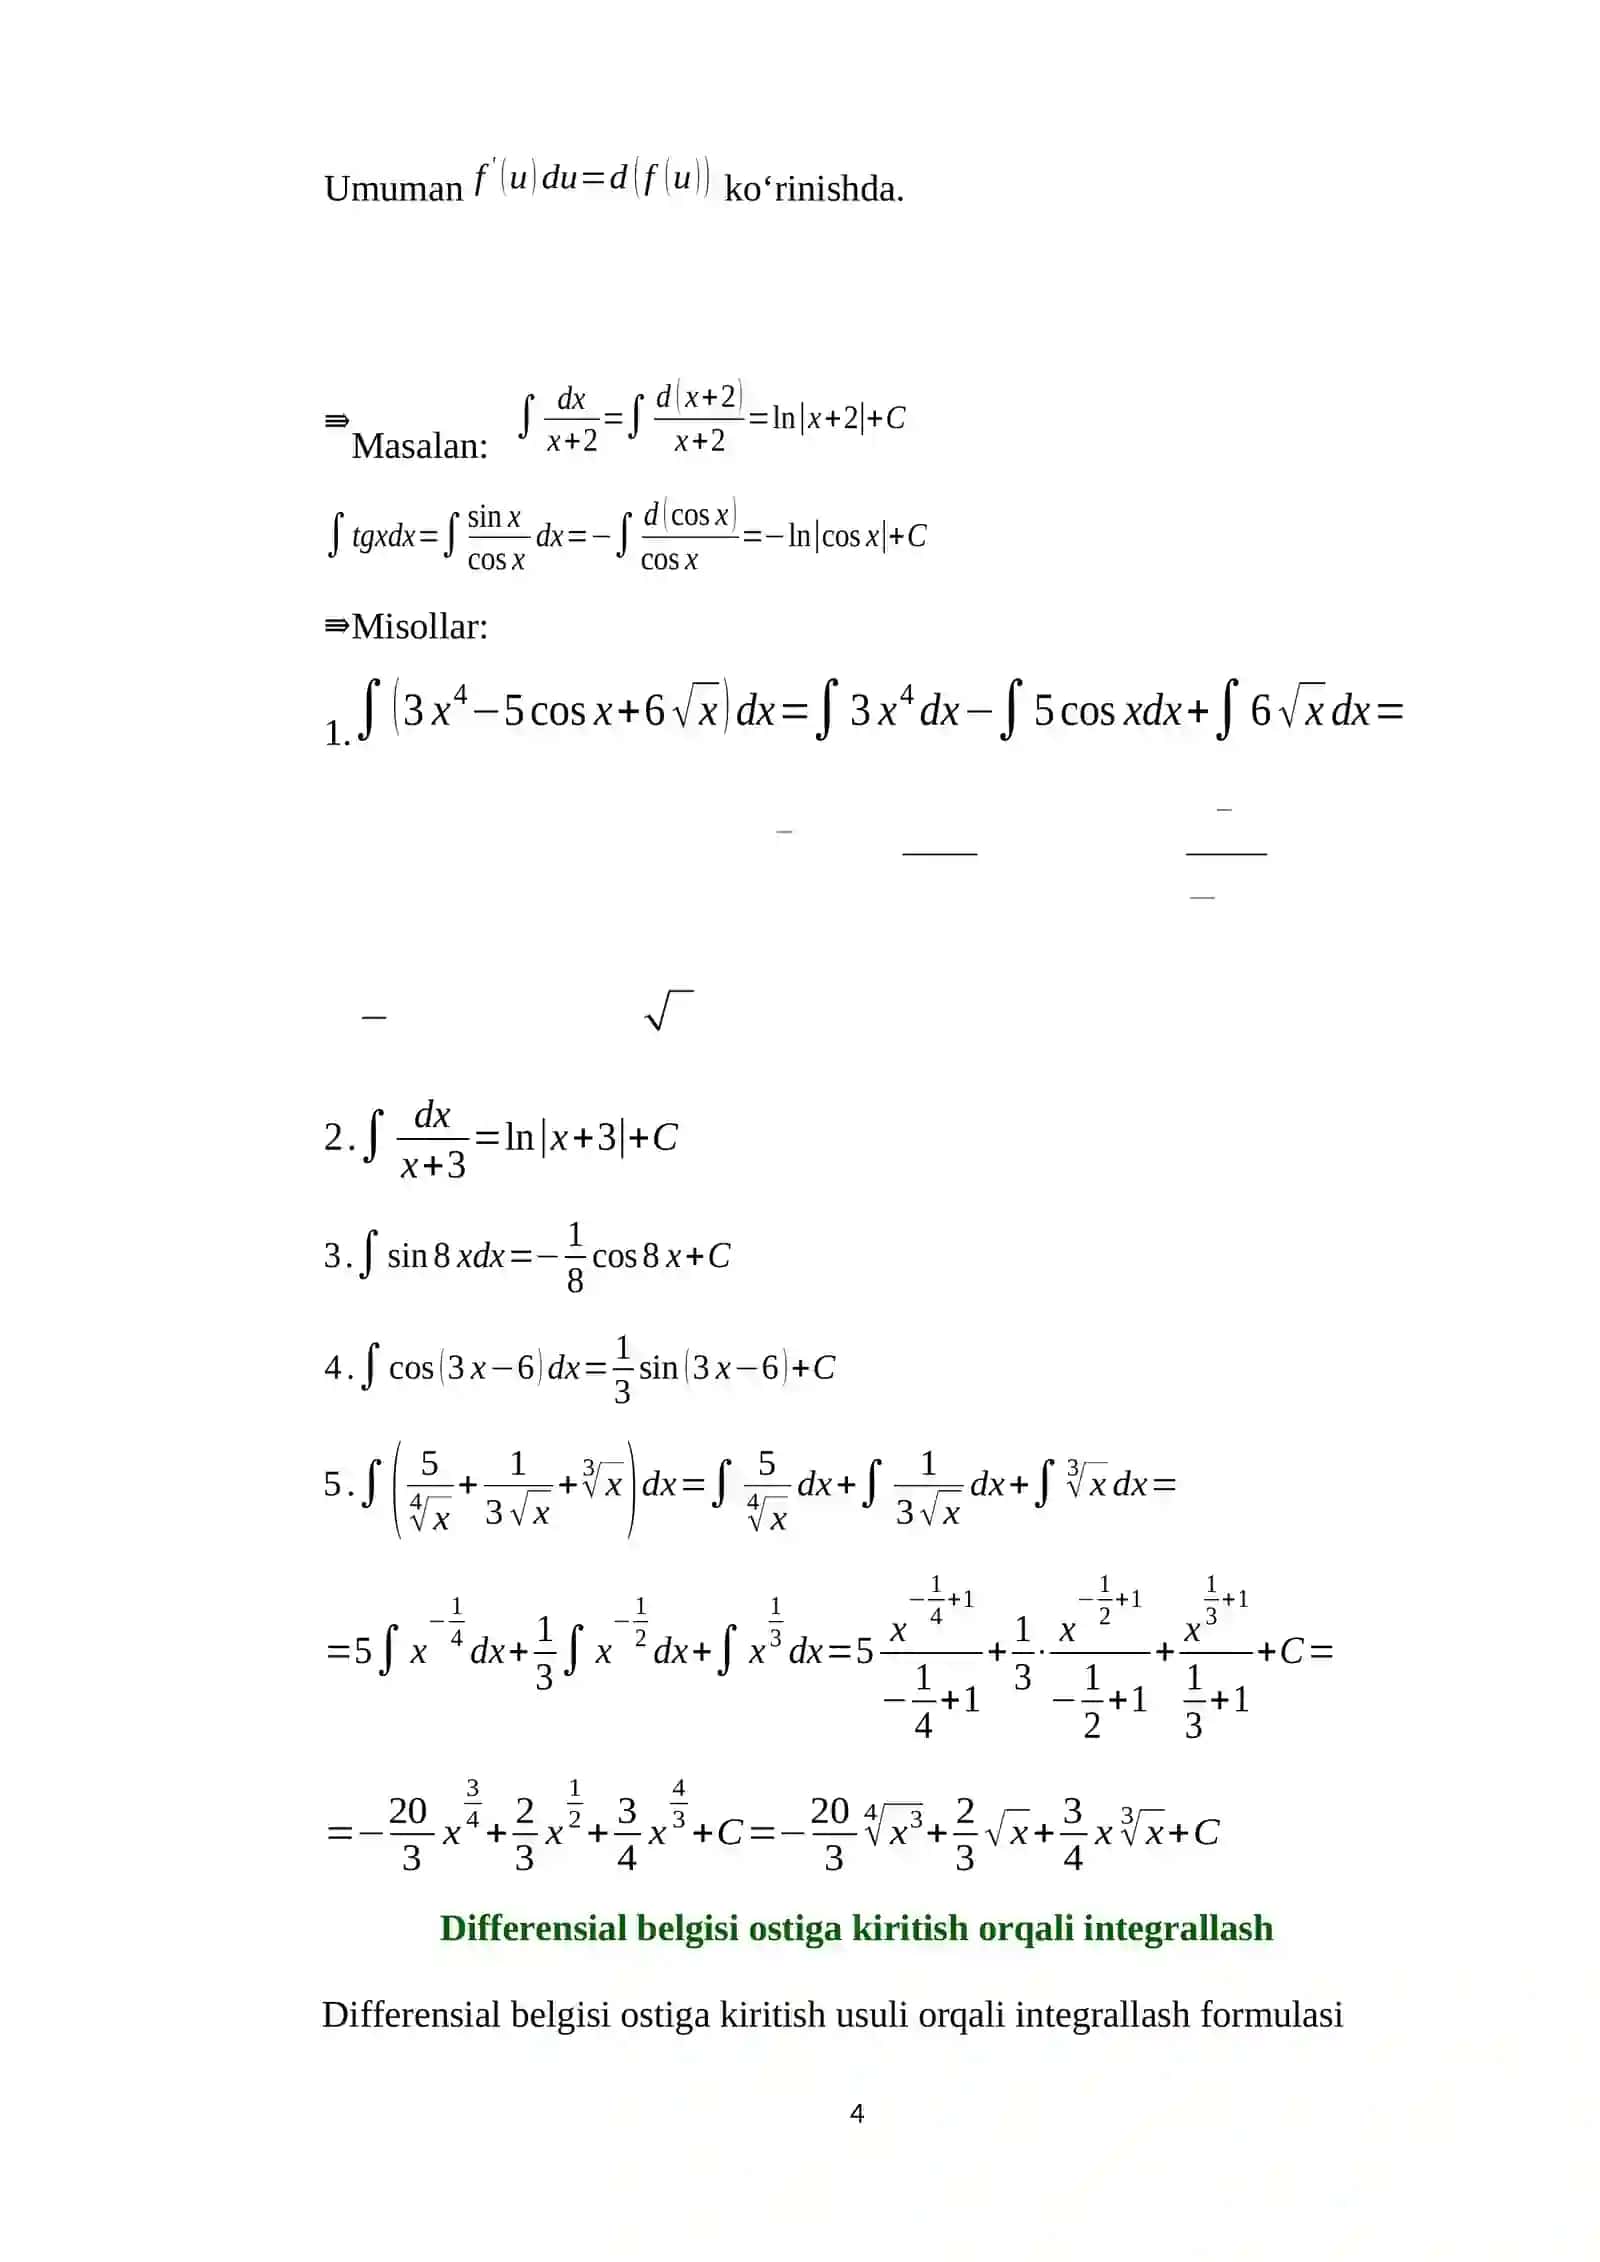 Umuman f'(u)du=d(f(u)) ko‘rinishda.
⇛Masalan: ∫ dx/(x+2) = ∫ d(x+2)/(x+2) = ln|x+2|+C
∫ tgxdx = ∫ sin x/cos x dx = − ∫ d(cos x)/cos x = − ln|cos x|+C
⇛Misollar:
1. ∫ (3x⁴−5cos x+6√x)dx = ∫ 3x⁴dx − ∫ 5cos xdx + ∫ 6√x dx =
2. ∫ dx/(x+3) = ln|x+3|+C
3. ∫ sin 8xdx = −1/8 cos 8x+C
4. ∫ cos(3x−6)dx = 1/3 sin(3x−6)+C
5. ∫ (5/∜x + 1/(3√x) + ∛x)dx = ∫ 5/∜x dx + ∫ 1/(3√x) dx + ∫ ∛x dx =
=5∫ x^(−1/4) dx + 1/3 ∫ x^(−1/2) dx + ∫ x^(1/3) dx = 5 x^(−1/4+1)/(−1/4+1) + 1/3 · x^(−1/2+1)/(−1/2+1) + x^(1/3+1)/(1/3+1) + C =
=−20/3 x^(3/4) + 2/3 x^(1/2) + 3/4 x^(4/3) + C = −20/3 ∜x³ + 2/3 √x + 3/4 x ∛x + C
Differensial belgisi ostiga kiritish orqali integrallash
Differensial belgisi ostiga kiritish usuli orqali integrallash formulasi
4